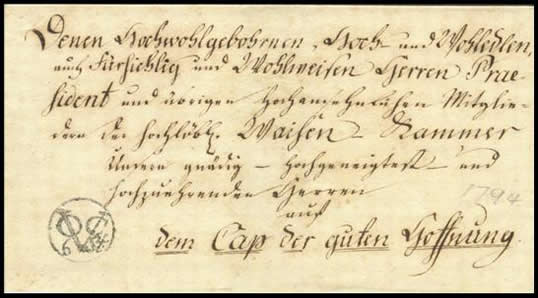 Denen Hochwohlgebohrnen, Hoch und Wohledlen,
auch Fürsichtig und Wohlweisen Herren Prae-
sident und übrigen Hochansehnlichen Mitglie-
dern der Hochlöbl. Waisen-Kammer
Unsern gnädig - Hochgeneigtest - und
hochzuehrenden Herren
1794
auf
dem Cap der guten Hoffnung.